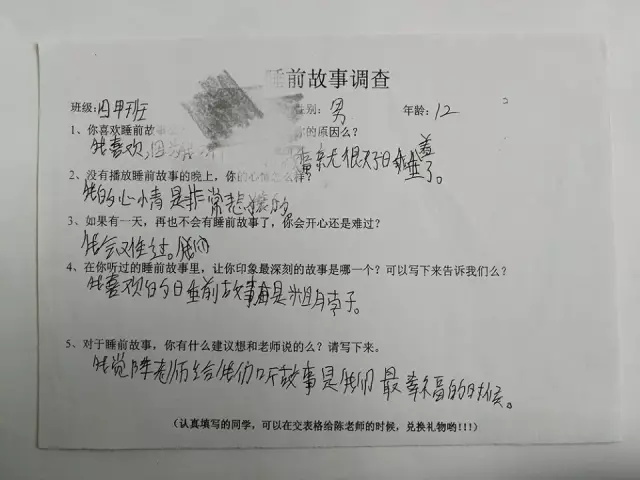 睡前故事调查
班级:四甲班 性别: 男 年龄: 12
1、你喜欢睡前故事 你的原因么？
我喜欢, 很 睡着了。
2、没有播放睡前故事的晚上，你的心情怎么样？
我的心情是非常悲 的
3、如果有一天，再也不会有睡前故事了，你会开心还是难过？
我会难过。我们
4、在你听过的睡前故事里，让你印象最深刻的故事是哪一个？可以写下来告诉我们么？
我喜欢的睡前故事是 胡子。
5、对于睡前故事，你有什么建议想和老师说的么？请写下来。
我觉陈老师给我们听故事是我们最幸福的时候。
(认真填写的同学，可以在交表格给陈老师的时候，兑换礼物哟!!!)